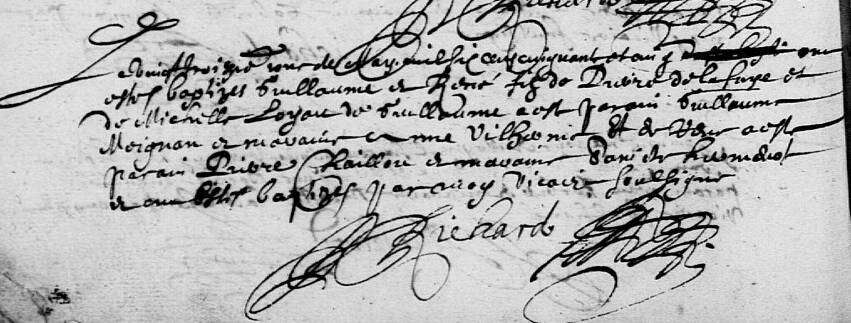 Richard
Le vingt troizie jour de May mil six cens cinquante et cinq ont
estes baptizes Guillaume et René filz de Pierre de la faye et
de Michelle Loyau de Guillaume a est parain Guillaume
Meignan et maraine Anne et de René a este
parain Pierre Chaillou et maraine
et ont estes baptizes par moy Vicaire soulsigne
Richard